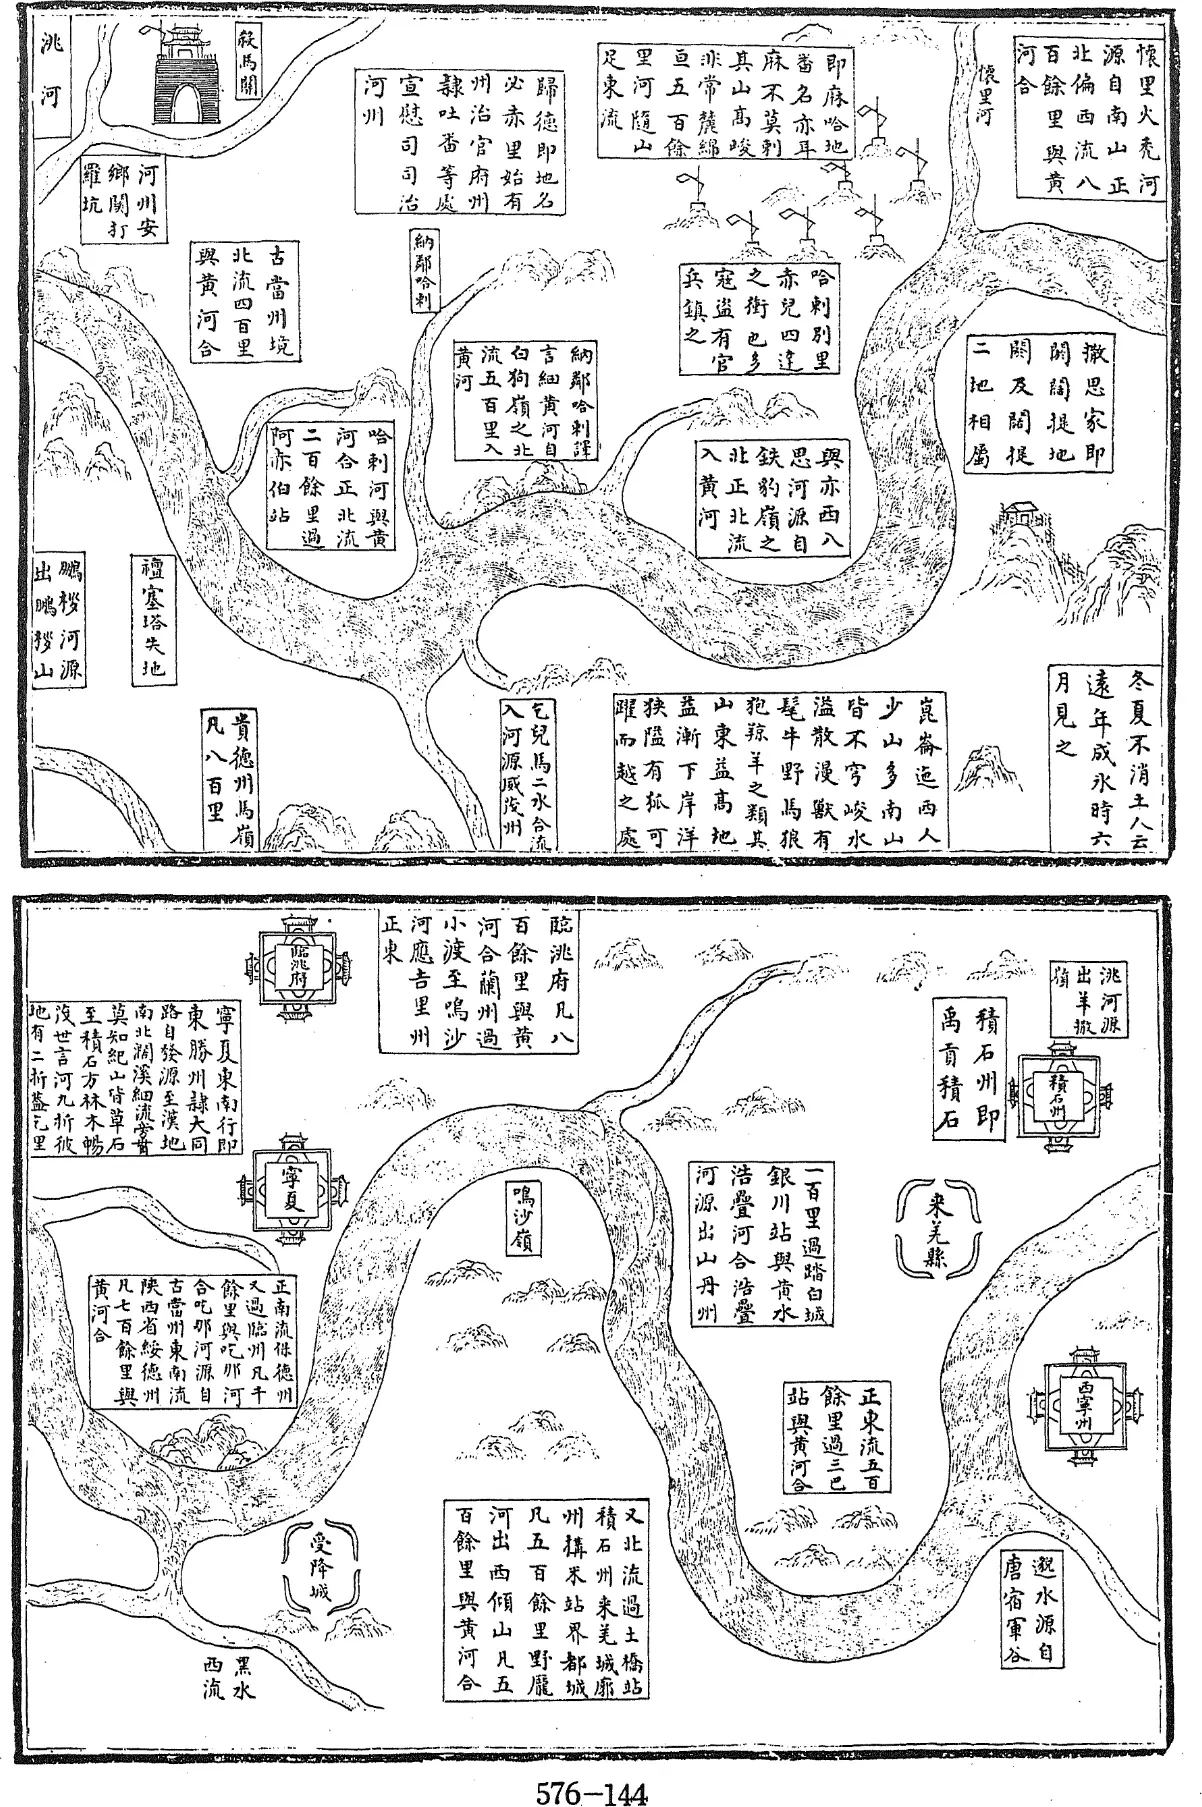 懷里火禿河
源自南山正
北偏西流八
百餘里與黃
河合
懷里河
即麻哈地
番名亦耳
麻不莫剌
其山高峻
非常麓綿
亘五百餘
里河隨山
足東流
歸德即地名
必赤里始有
州治官府州
隸吐番等處
宣慰司司治
河州
殺馬關
洮河
河州安
鄉關打
羅坑
撒思家即
闊闊提地
闊及闊提
二地相屬
哈剌別里
赤兒四達
之衝也多
寇盜有官
兵鎮之
納鄰哈剌
古當州境
北流四百里
與黃河合
納鄰哈剌譯
言細黃河自
白狗嶺之北
流五百里入
黃河
與亦西八
思河源自
鉄豹嶺之
北正北流
入黃河
哈剌河與黃
河合正北流
二百餘里過
阿亦伯站
檀塞塔失地
鵬拶河源
出鵬拶山
冬夏不消土人云
遠年成氷時六
月見之
崑崙迤西人
少山多南山
皆不穹峻水
溢散漫獸有
髦牛野馬狼
狍羱羊之類其
山東益高地
益漸下岸洋
狹隘有狐可
躍而越之處
乞兒馬二水合流
入河源威茂州
貴德州馬嶺
凡八百里
洮河源
出羊撒
嶺
積石州即
禹貢積石
積石州
臨洮府凡八
百餘里與黃
河合蘭州過
小渡至鳴沙
河應吉里州
正東
臨洮府
寧夏東南行即
東勝州隸大同
路自發源至漢地
南北澗溪細流旁貫
莫知紀山皆草石
至積石方林木暢
茂世言河九折彼
地有二折蓋乞里
寧夏
鳴沙嶺
来羌縣
一百里過踏白城
銀川站與黃水
浩亹河合浩亹
河源出山丹州
西寧州
正南流保德州
又過臨州凡千
餘里與吃那河
合吃那河源自
古當州東南流
陝西省綏德州
凡七百餘里與
黃河合
正東流五百
餘里過三巴
站與黃河合
又北流過土橋站
積石州来羌城廓
州搆米站界都城
凡五百餘里野龐
河出西傾山凡五
百餘里與黃河合
邈水源自
唐宿軍谷
受降城
黑水
西流
576-144